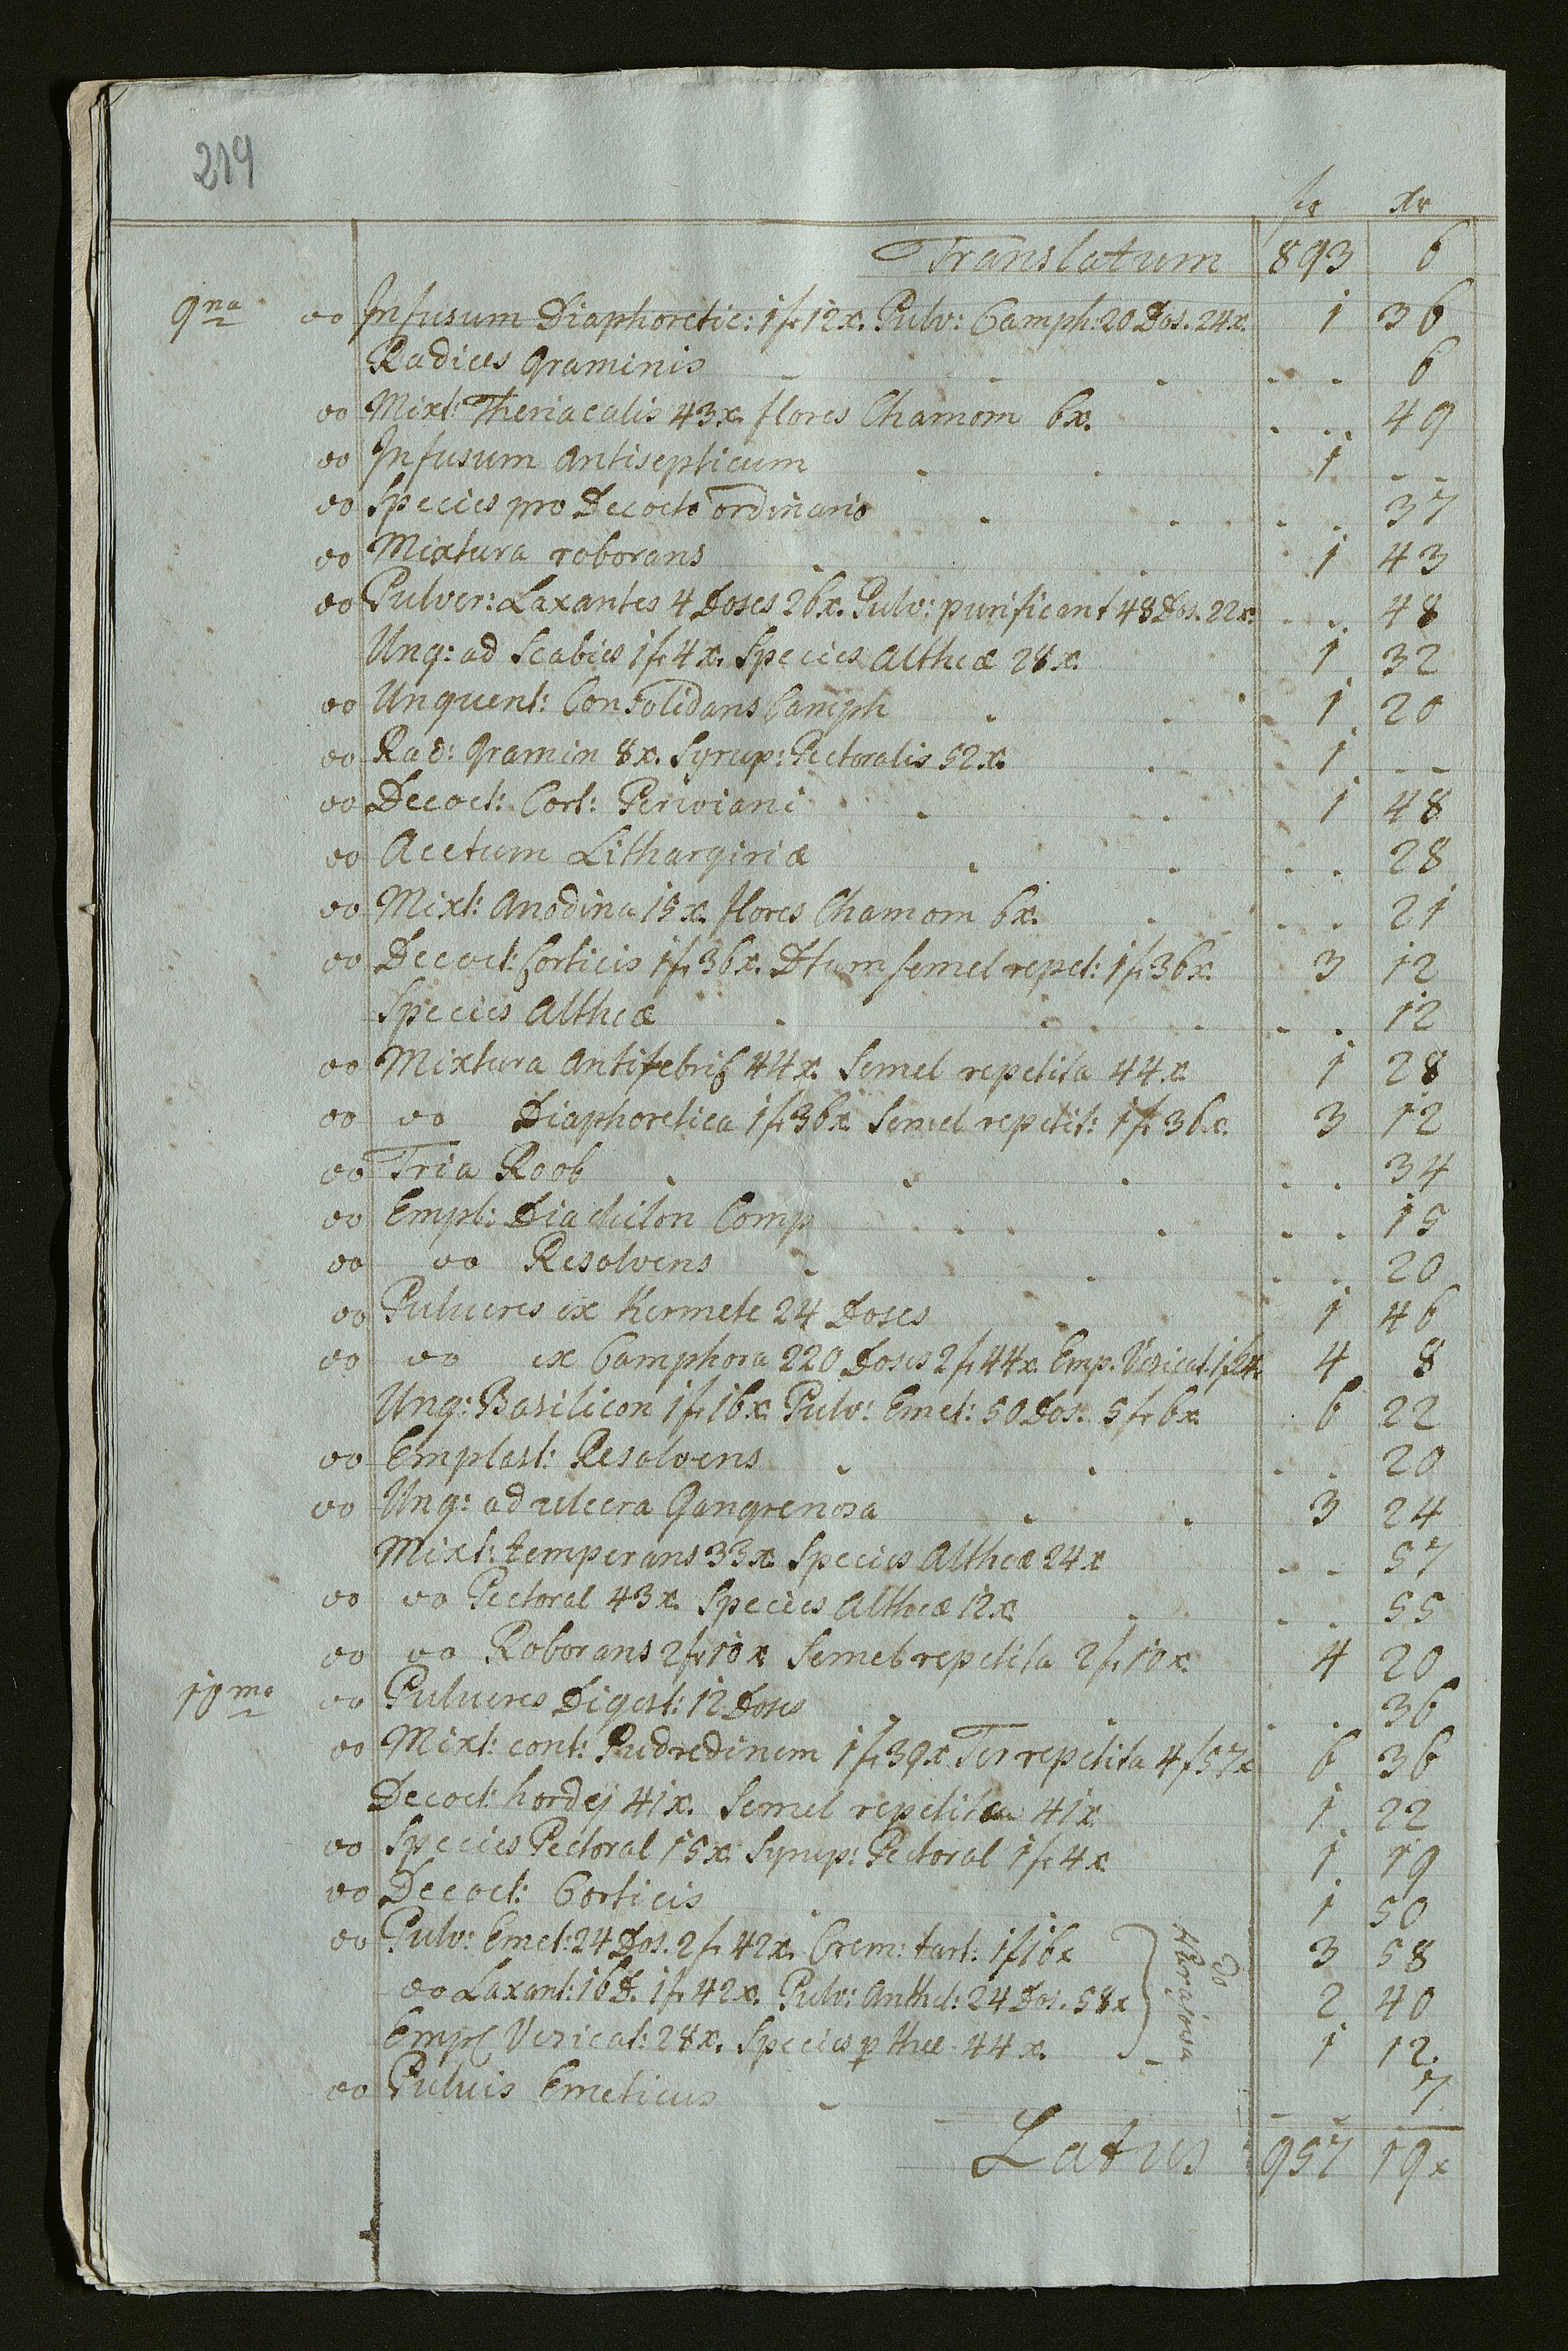 219
fr xr
Translatum 893 6
9na do Infusum Diaphoretic: 1 fr 12x. Pulv: Camph: 20 Dos. 24x. 1 36
Radices Graminis - - . . . 6
do Mixt: Theriacalis 43x. flores Chamom 6x. . . . 49
do Infusum Antisepticum . . 1 - -
do Species pro Decocto ordinario . . . . 37
do Mixtura roborans . . . 1 43
do Pulver: Laxantes 4 Doses 26x. Pulv: purificant 48 Dos. 22x. . . 48
Ung: ad Scabies 1 fr 4x. Species Altheæ 28x. 1 32
do Unguent: Consolidans Camph . . 1 20
do Rad: Gramin 8x. Syrup: Pectoralis 52x. . 1 - -
do Decoct: Cort: Peruviani . . 1 48
do Acetum Lithargiriæ . . . . 28
do Mixt: Anodina 15x. flores Chamom 6x. . . . 21
do Decoct: Corticis 1 fr 36x. Dtum semel repet: 1 fr 36x. 3 12
Species Altheæ . . . . . 12
do Mixtura Antifebril 44x. Semel repetita 44x. 1 28
do do Diaphoretica 1 fr 36x Semel repetit: 1 fr 36x. 3 12
do Tria Roob . . . . . 34
do Empl: Diachilon Comp . . . . . 15
do do Resolvens . . . . 20
do Pulueres ex Kermete 24 Doses 1 46
do do ex Camphora 220 Doses 2 fr 44x. Emp. Vesicat. 1 f 24. 4 8
Ung: Basilicon 1 fr 16x. Pulv: Emet: 50 Dos. 5 fr 6x. 6 22
do Emplast: Resolvens . . . . 20
do Ung: ad ulcera Gangrenosa . . 3 24
Mixt: temperans 33x. Species Altheæ 24x . . 57
do do Pectoral 43x. Species Altheæ 12x. . . . 55
do do Roborans 2 fr 10x Semel repetita 2 fr 10x. 4 20
10ma do Pulueres Digest: 12 Doses . . . . 36
do Mixt: cont: Pudredinem 1 fr 39x Ter repetita 4 f 57x 6 36
Decoct: hordej 41x. Semel repetita 41x 1 22
do Species Pectoral 15x. Syrup: Pectoral 1 fr 4x. 1 19
do Decoct: Corticis . . 1 50
do Pulv: Emet: 24 Dos. 2 fr 42x. Crem: tart: 1 f 16x 3 58
do Laxant: 16 D. 1 fr 42x. Pulv: Anthel: 24 Dos. 58x 2 40
Empl Vesicat: 28x. Species p thee 44x. - 1 12.
do
do Puluis Emeticus - - - 7
Latus 957 19x